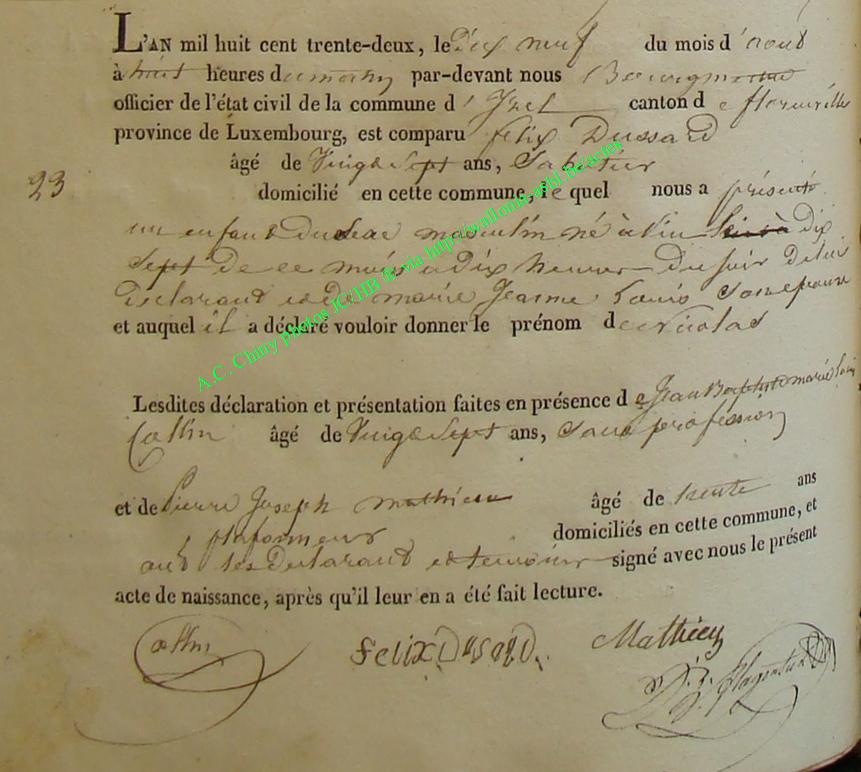 L'AN mil huit cent trente-deux, le dix neuf du mois d'aout
à huit heures du matin par-devant nous Bourgmestre
officier de l'état civil de la commune d'Izel canton de florenville
province de Luxembourg, est comparu felix Dussard
âgé de Vingt Sept ans, Sabotier
23 domicilié en cette commune, lequel nous a présenté
un enfant du sexe masculin né à dix
Sept de ce mois a Dix heures du soir de lui
Declarant et de marie Jeanne Louis Son epouse
et auquel il a déclaré vouloir donner le prénom de nicolas
Lesdites déclaration et présentation faites en présence de Jean Baptiste marie
Collin âgé de Vingt Sept ans, Sans profession
et de Pierre Joseph mathieu âgé de trente ans
plafonneur domiciliés en cette commune, et
ont les Declarant et temoins signé avec nous le présent
acte de naissance, après qu'il leur en a été fait lecture.
Collin FELIX DUSARD Mathieu
A.C. Chiny photos JC HB de via http://wallonia-asbl.be/actes